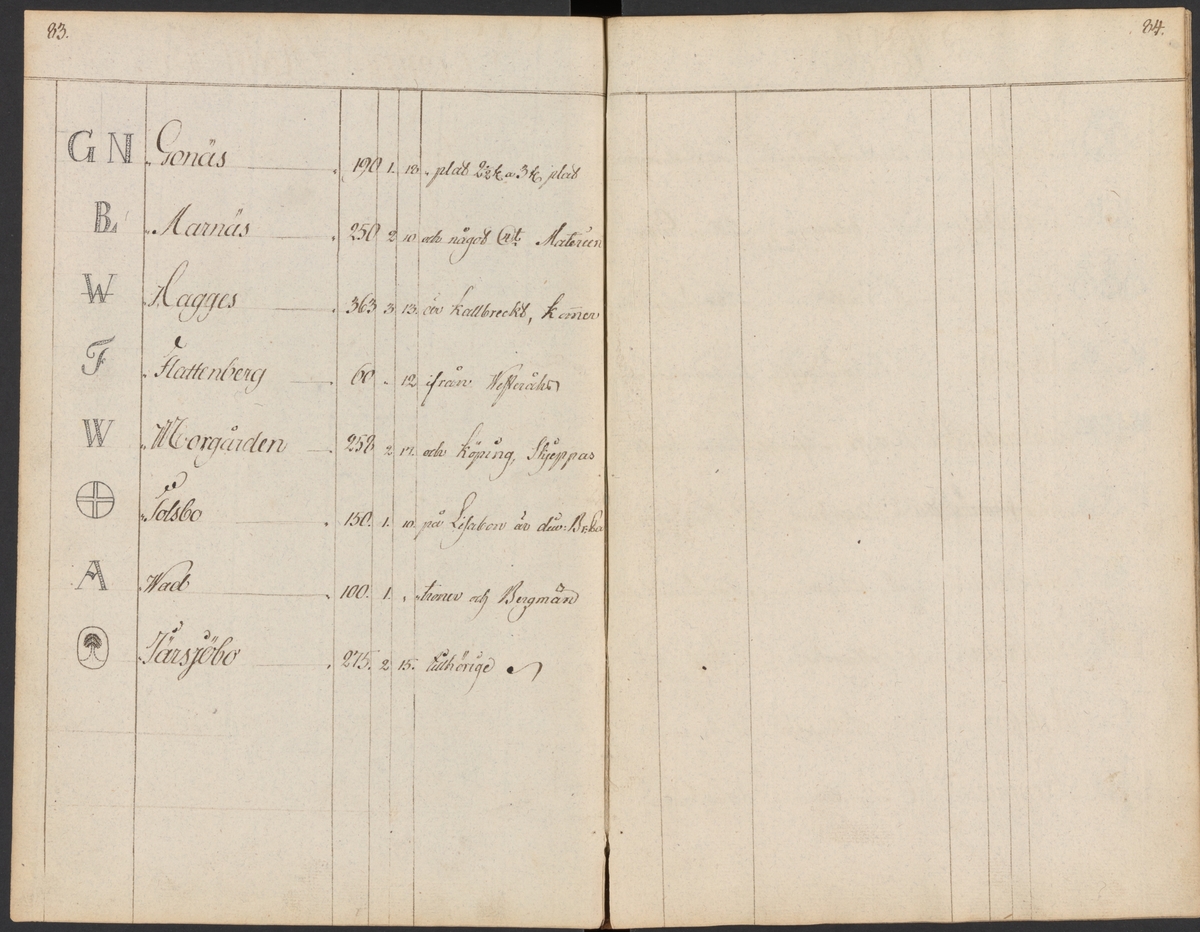 83.
84.
G N „ Gonäs „ 190 1. 13. „ plåt 2½ k a 3 k plåt
B „ Marnäs „ 250 2 10 och något Materien
W „ Hagges „ 363 3 13. är kallbreckt, kom̄er
F „ Flattenberg „ 60 „ 12 ifrån Westeråhs
W „ Morgården „ 258 2 17. och Köping, Skjeppas
„ Tolsbo „ 150. 1. 10. på Lisabon är dess
A „ Wad „ 100. 1. „ troner och Bergmän
„ Tärsjöbo „ 275. 2 15. tillhörige